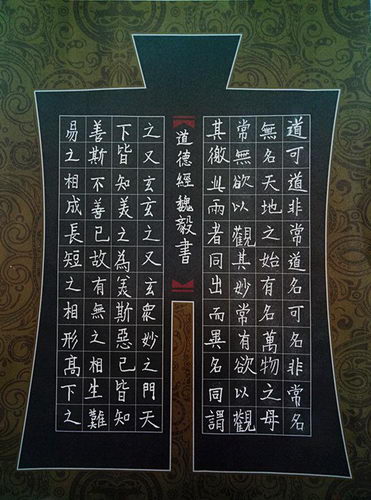 道可道非常道名可名非常名
無名天地之始有名萬物之母
常無欲以觀其妙常有欲以觀
其徼此兩者同出而異名同謂
道德經魏毅書
之又玄玄之又玄眾妙之門天
下皆知美之為美斯惡已皆知
善斯不善已故有無之相生難
易之相成長短之相形高下之